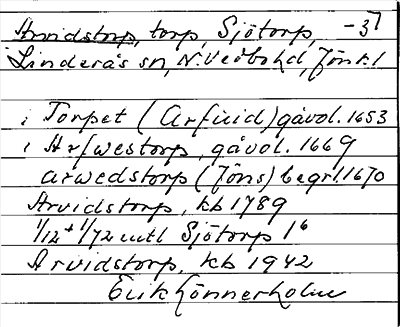 Arvidstorp, torp, Sjötorp, -37
Linderås sn, N. Vedbo hd, Jönk. l
i Torpet (Arfuid) gåvol. 1653
i Arfwestorp, gåvol. 1669
Arwedstorp (Jöns) begr. l. 1670
Arvidstorp, kb 1789
1/12 + 1/72 mtl Sjötorp 1⁶
Arvidstorp, kb 1942
Erik Lönnerholm